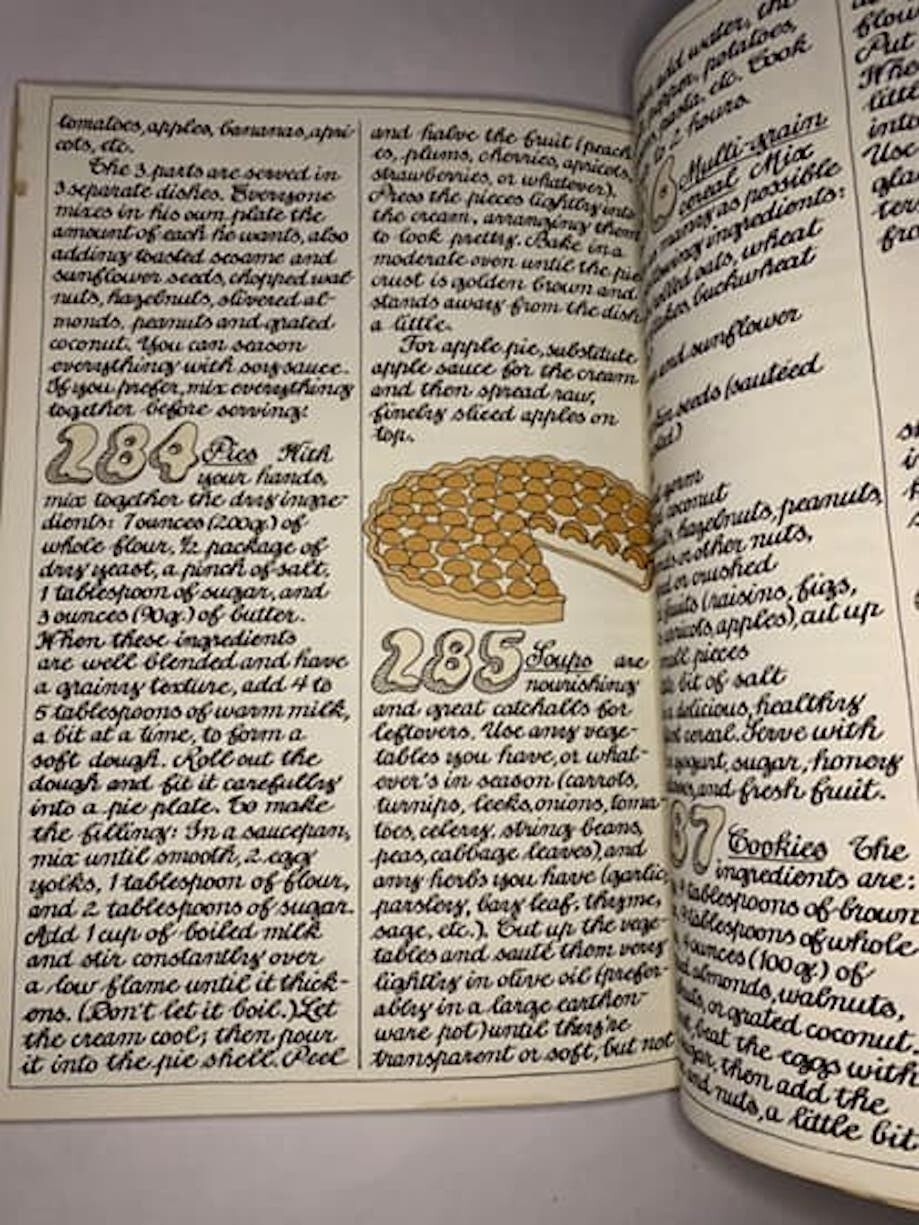 tomatoes, apples, bananas, apri-
cots, etc.
The 3 parts are served in
3 separate dishes. Everyone
mixes in his own plate the
amount of each he wants, also
adding toasted sesame and
sunflower seeds, chopped wal-
nuts, hazelnuts, slivered al-
monds, peanuts and grated
coconut. You can season
everything with soy sauce.
If you prefer, mix everything
together before serving!
284 Pies With
your hands,
mix together the dry ingre-
dients: 7 ounces (200g.) of
whole flour, 1/2 package of
dry yeast, a pinch of salt,
1 tablespoon of sugar, and
3 ounces (90g.) of butter.
When these ingredients
are well blended and have
a grainy texture, add 4 to
5 tablespoons of warm milk,
a bit at a time, to form a
soft dough. Roll out the
dough and fit it carefully
into a pie plate. To make
the filling: In a saucepan,
mix until smooth, 2 egg
yolks, 1 tablespoon of flour,
and 2 tablespoons of sugar.
Add 1 cup of boiled milk
and stir constantly over
a low flame until it thick-
ens. (Don't let it boil.) Let
the cream cool; then pour
it into the pie shell. Peel
and halve the fruit (peach-
es, plums, cherries, apricots,
strawberries, or whatever).
Press the pieces lightly into
the cream, arranging them
to look pretty. Bake in a
moderate oven until the pie
crust is golden brown and
stands away from the dish
a little.
For apple pie, substitute
apple sauce for the cream
and then spread raw,
finely sliced apples on
top.
285 Soups are
nourishing
and great catchalls for
leftovers. Use any vege-
tables you have, or what-
ever's in season (carrots,
turnips, leeks, onions, toma-
toes, celery, string beans,
peas, cabbage leaves), and
any herbs you have (garlic,
parsley, bay leaf, thyme,
sage, etc.). Cut up the vege-
tables and sauté them very
lightly in olive oil (prefer-
ably in a large earthen-
ware pot) until they're
transparent or soft, but not
add water, the
pepper, potatoes,
pasta, etc. Cook
to 2 hours.
6 Multi-grain
cereal Mix
many as possible
ingredients:
rolled oats, wheat
buckwheat
and sunflower
seeds (sautéed
germ
coconut
hazelnuts, peanuts,
or other nuts,
or crushed
fruits (raisins, figs,
apricots, apples), cut up
pieces
bit of salt
a delicious, healthy
cereal. Serve with
yogurt, sugar, honey
and fresh fruit.
87 Cookies The
ingredients are:
tablespoons of brown
tablespoons of whole
ounces (100g.) of
almonds, walnuts,
or grated coconut.
beat the eggs with
then add the
nuts, a little bit
flour
Put
When
little
into
Use